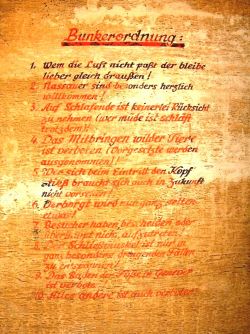 Bunkerordnung:
1. Wem die Luft nicht paßt der bleibe
lieber gleich draußen!
2. Nassauer sind besonders herzlich
willkommen!
3. Auf Schlafende ist keinerlei Rücksicht
zu nehmen (wer müde ist schläft
trotzdem)
4. Das Mitbringen wilder Tiere
ist verboten (Vorgesetzte werden
ausgenommen)!
5. Wer sich beim Eintritt den Kopf
stößt braucht sich auch in Zukunft
nicht vorsehen!
6. Verborgt wird nur ganz selten
etwas!
7. Besucher haben bescheiden
überhaupt nich aufzutreten!
8. Der ist nur in
ganz besonders dringenden Fällen
zu
9. Das Baden der Füße
ist verboten
10. Alles andere ist auch verboten